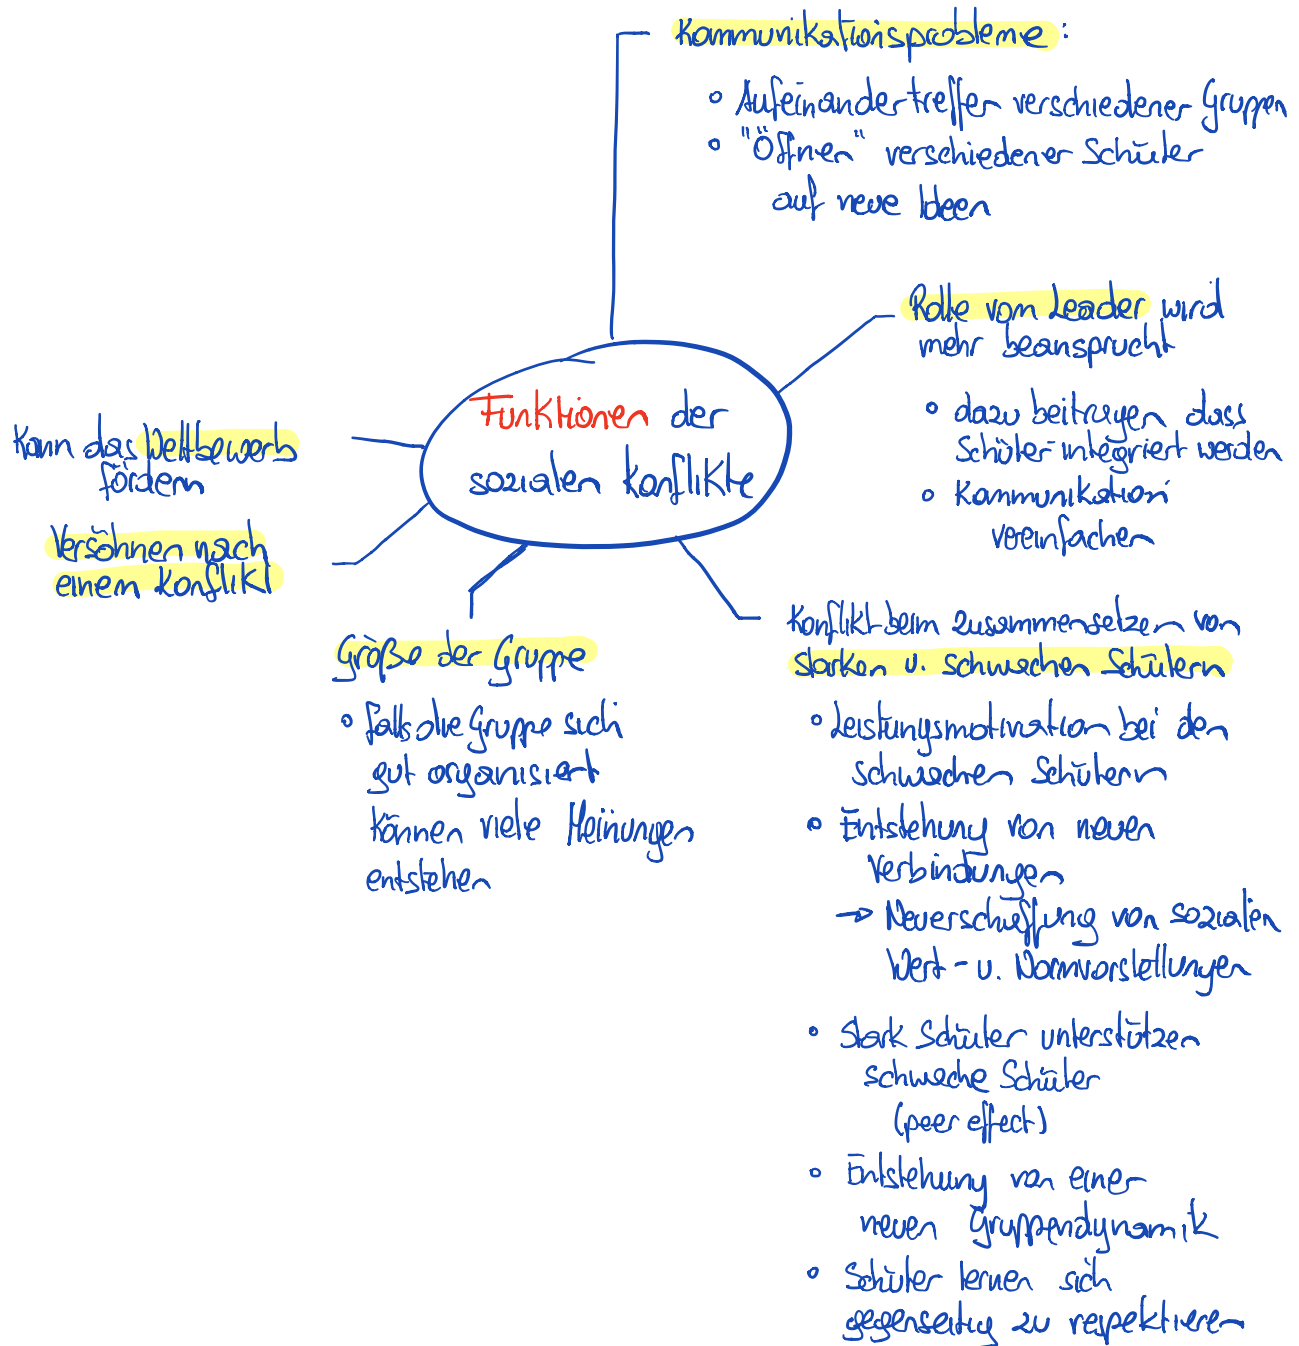 Kommunikationsprobleme:
° Aufeinandertreffen verschiedener Gruppen
° "Öffnen" verschiedener Schüler
auf neue Ideen
Rolle vom Leader wird
mehr beansprucht
° dazu beitragen dass
Schüler integriert werden
° Kommunikation
vereinfachen
Funktionen der
sozialen Konflikte
Kann das Wettbewerb
fördern
Versöhnen nach
einem Konflikt
Größe der Gruppe
° falls die Gruppe sich
gut organisiert
können viele Meinungen
entstehen
Konflikt beim Zusammensetzen von
starken u. schwachen Schülern
° Leistungsmotivation bei den
schwachen Schülern
° Entstehung von neuen
Verbindungen
→ Neuerschaffung von sozialen
Wert- u. Normvorstellungen
° Stark Schüler unterstützen
schwache Schüler
(peer effect)
° Entstehung von einer
neuen Gruppendynamik
° Schüler lernen sich
gegenseitig zu respektieren